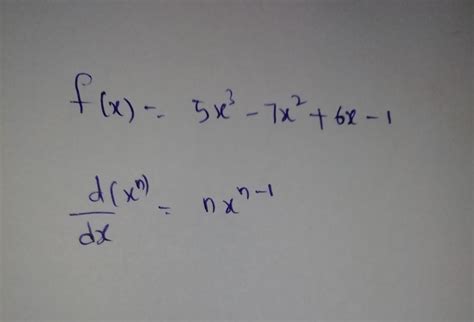 f(x) = 5x³ - 7x² + 6x - 1
d(xⁿ)/dx = nxⁿ⁻¹